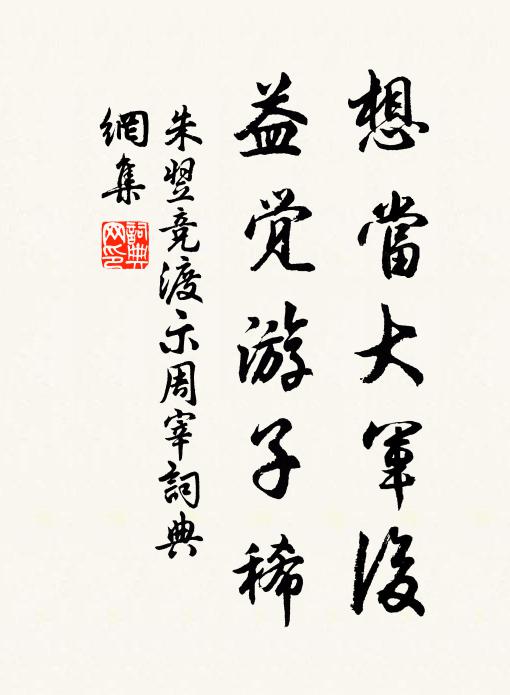 想當大軍後
益覺游子稀
朱翌竞渡示周宰詞典
網集
詞典网印